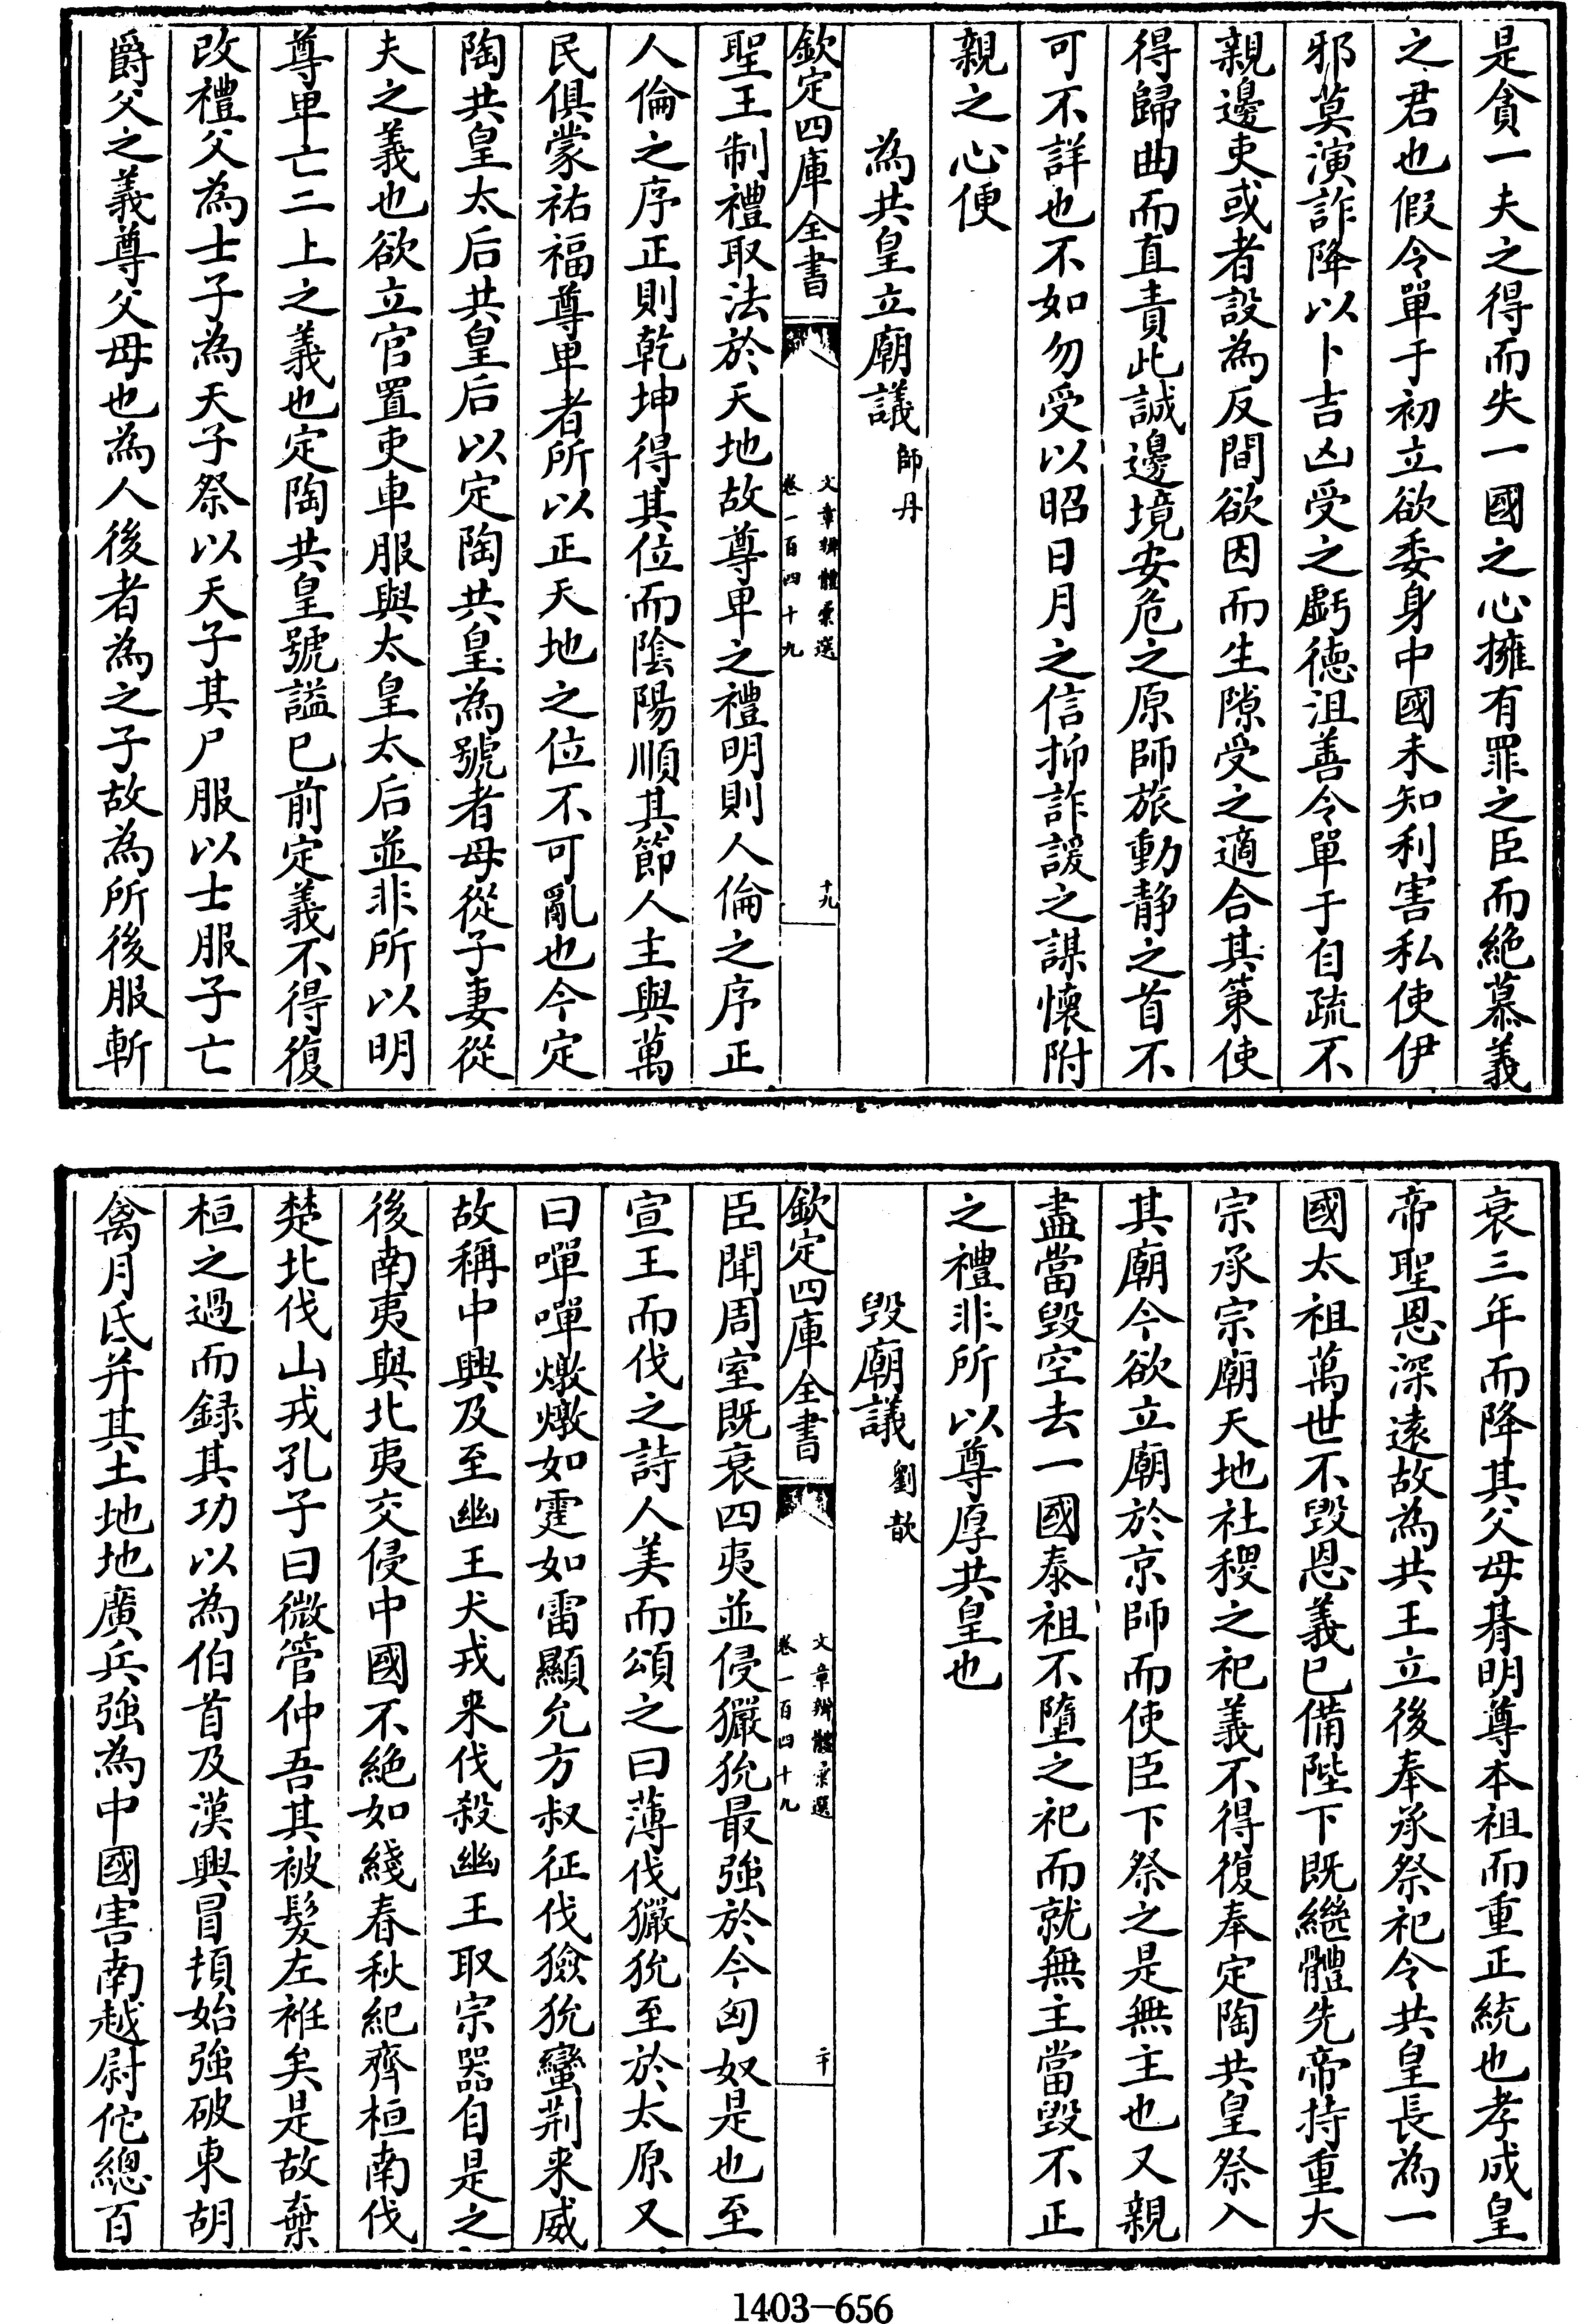 是貪一夫之得而失一國之心擁有罪之臣而絶慕義
之君也假令單于初立欲委身中國未知利害私使伊
邪莫演詐降以卜吉凶受之虧德沮善令單于自疏不
親邊吏或者設為反間欲因而生隙受之適合其策使
得歸曲而直責此誠邊境安危之原師旅動静之首不
可不詳也不如勿受以昭日月之信抑詐諼之謀懷附
親之心便
為共皇立廟議師丹
欽定四庫全書
文章辨體彚選
卷一百四十九
十九
聖王制禮取法於天地故尊卑之禮明則人倫之序正
人倫之序正則乾坤得其位而陰陽順其節人主與萬
民俱蒙祐福尊卑者所以正天地之位不可亂也今定
陶共皇太后共皇后以定陶共皇為號者母從子妻從
夫之義也欲立官置吏車服與太皇太后並非所以明
尊卑亡二上之義也定陶共皇號謚已前定義不得復
改禮父為士子為天子祭以天子其尸服以士服子亡
爵父之義尊父母也為人後者為之子故為所後服斬
衰三年而降其父母朞明尊本祖而重正統也孝成皇
帝聖恩深遠故為共王立後奉承祭祀令共皇長為一
國太祖萬世不毀恩義已備陛下既繼體先帝持重大
宗承宗廟天地社稷之祀義不得復奉定陶共皇祭入
其廟今欲立廟於京師而使臣下祭之是無主也又親
盡當毀空去一國泰祖不墮之祀而就無主當毀不正
之禮非所以尊厚共皇也
毀廟議劉歆
欽定四庫全書
文章辨體彚選
卷一百四十九
二十
臣聞周室既衰四夷並侵玁狁最強於今匈奴是也至
宣王而伐之詩人美而頌之曰薄伐玁狁至於太原又
曰嘽嘽燉燉如霆如雷顯允方叔征伐獫狁蠻荆来威
故稱中興及至幽王犬戎来伐殺幽王取宗器自是之
後南夷與北夷交侵中國不絶如綫春秋紀齊桓南伐
楚北伐山戎孔子曰微管仲吾其被髮左袵矣是故棄
桓之過而録其功以為伯首及漢興冒頓始強破東胡
禽月氏并其土地地廣兵強為中國害南越尉佗總百
1403-656